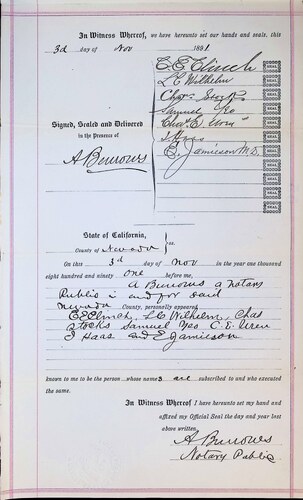 In Witness Whereof, we have hereunto set our hands and seals, this
3d day of Nov 1891
E E Clinch
L C Wilhelm
Chas. Stocks
Samuel Yeo
Signed, Sealed and Delivered
Chas. E. Uren
in the Presence of
J Haas
E. Jamieson M.D.
A Burrows
State of California,
County of Nevada } ss.
On this 3d day of Nov in the year one thousand
eight hundred and ninety one before me,
A Burrows a notary
Public in and for said
Nevada County, personally appeared
E E Clinch, L C Wilhelm, Chas
Stocks Samuel Yeo C. E. Uren
J Haas and E Jamieson
known to me to be the person whose names are subscribed to and who executed
the same.
In Witness Whereof I have hereunto set my hand and
affixed my Official Seal the day and year last
above written.
A Burrows
Notary Public